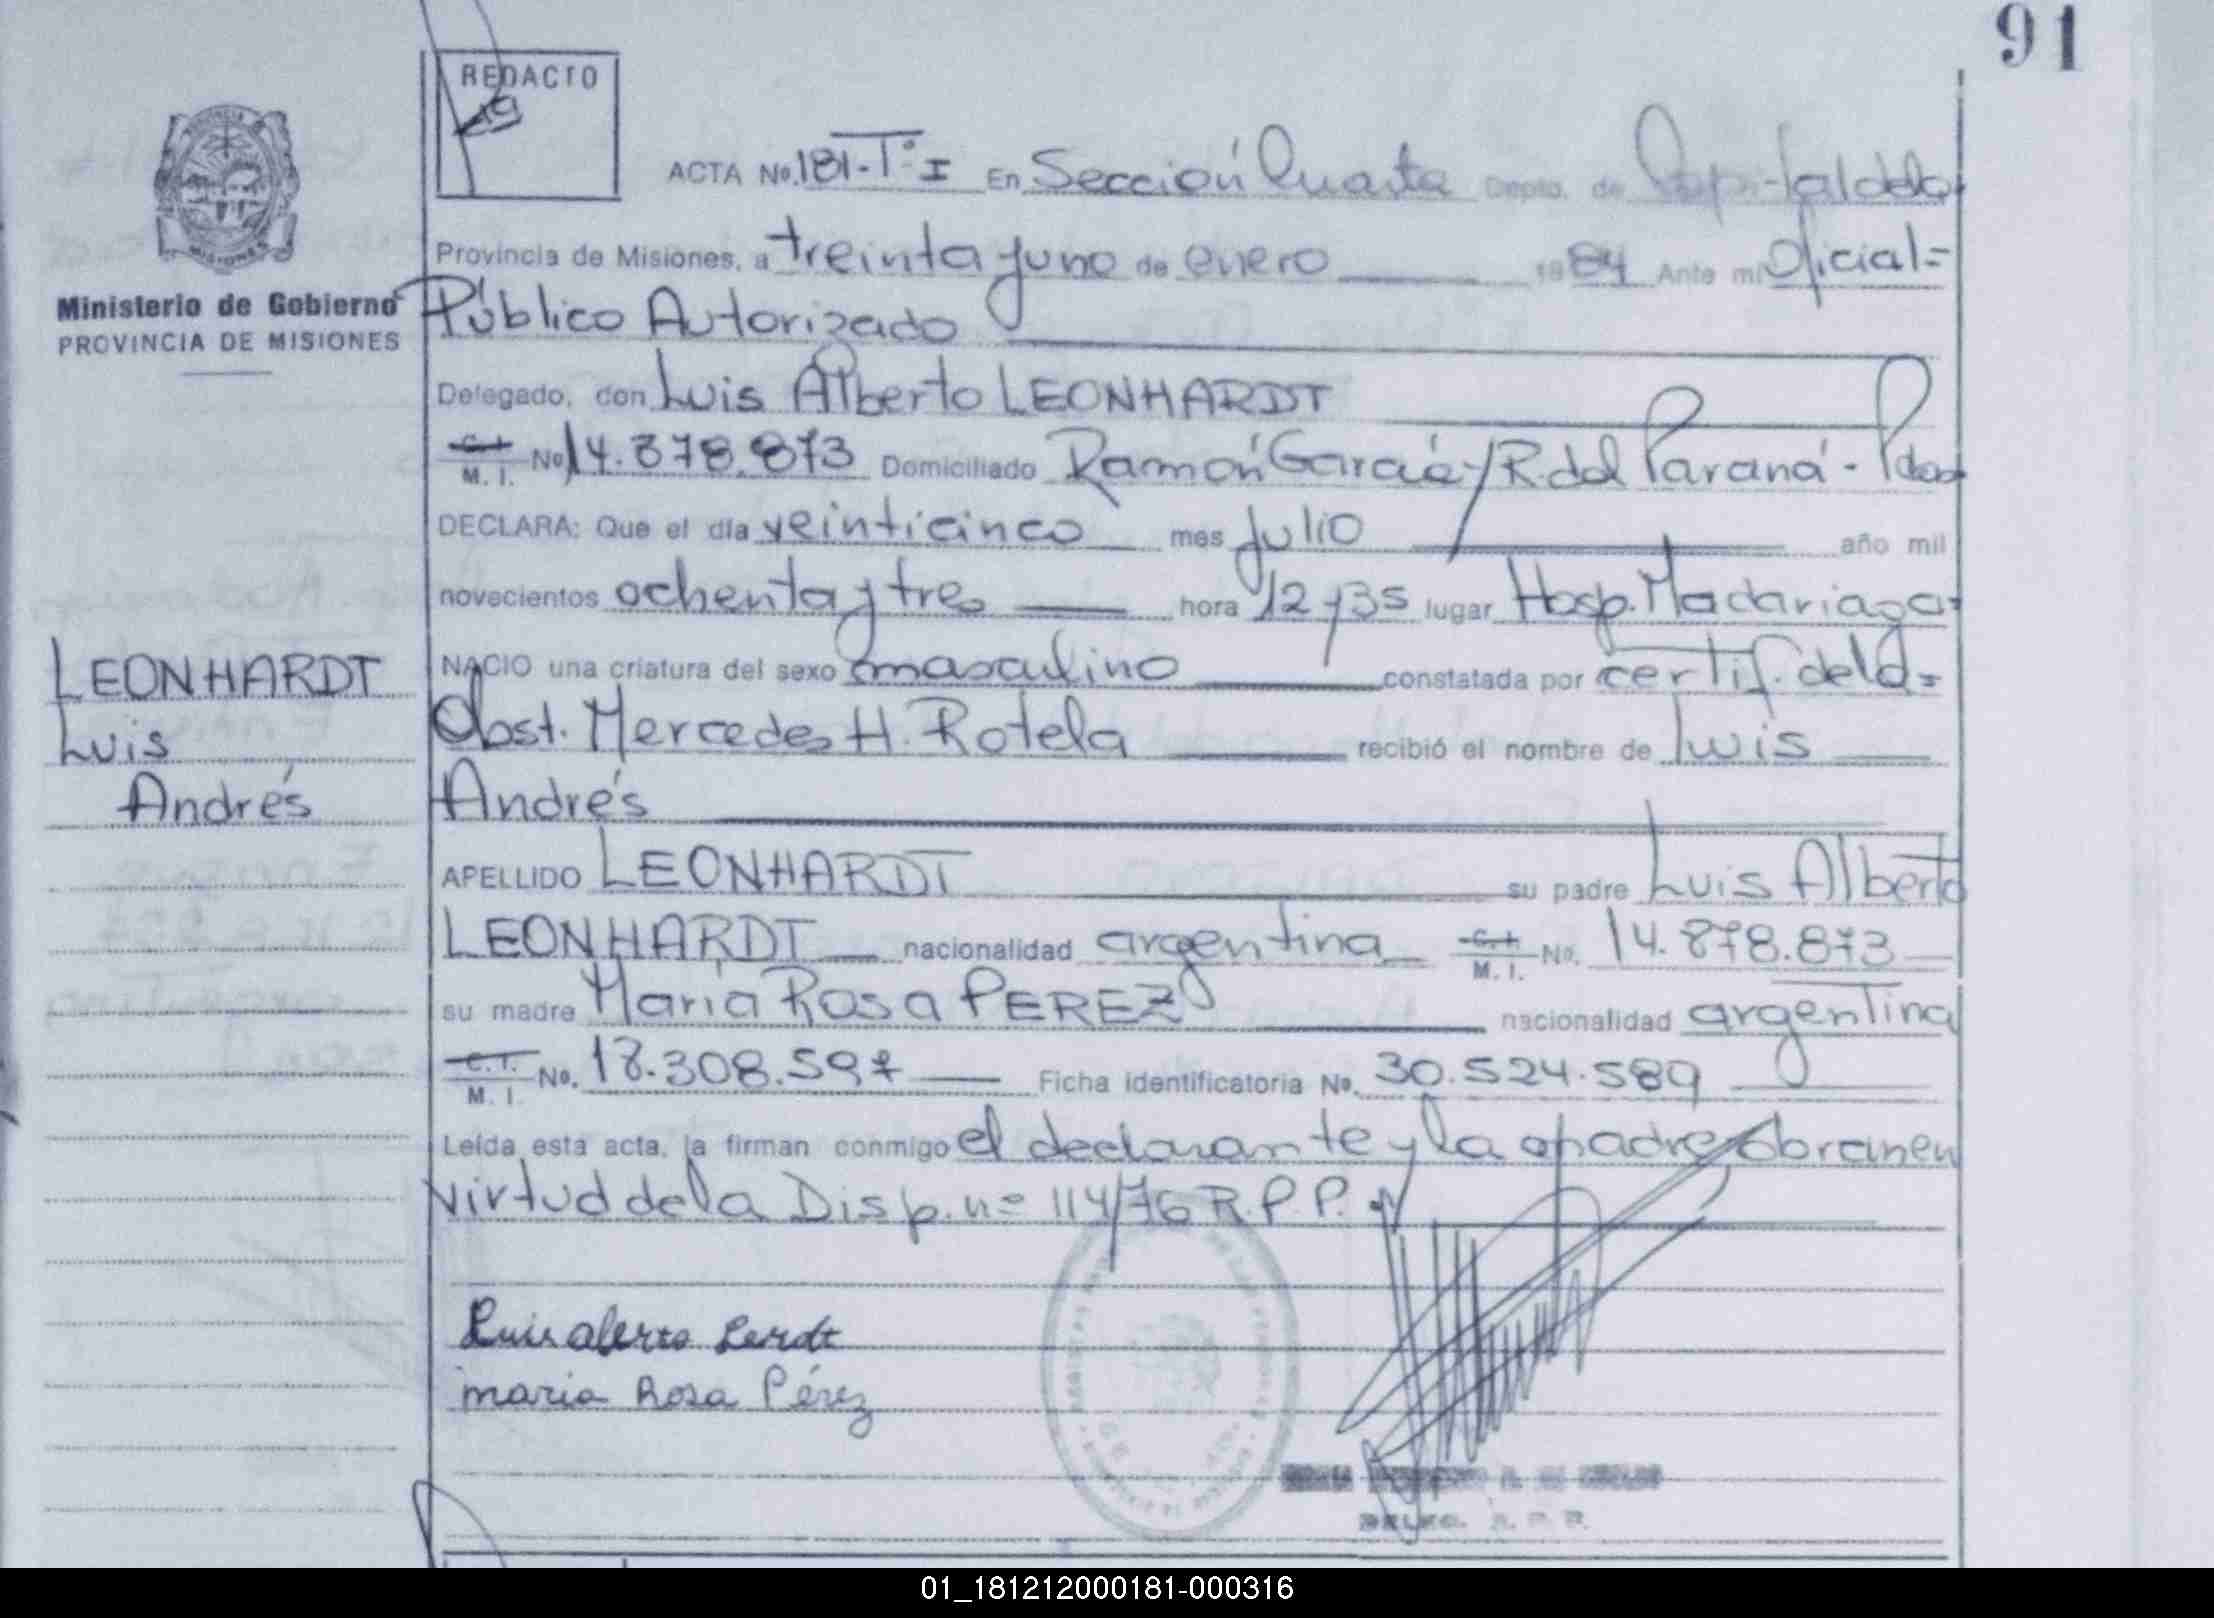 91
REDACTO
ACTA No. 181-Tº I En Sección Cuarta Depto. de Capital de la
Provincia de Misiones, a treinta y uno de enero 1984 Ante mi Oficial=
Ministerio de Gobierno
PROVINCIA DE MISIONES
Público Autorizado
Delegado, don Luis Alberto LEONHARDT
C.I. M. I. No 14.878.873 Domiciliado Ramón García y R. del Paraná - Pdas
DECLARA: Que el día veinticinco mes Julio año mil
novecientos ochenta y tres hora 12 y 35 lugar Hosp. Madariaga-
NACIO una criatura del sexo masculino constatada por certif. de la=
LEONHARDT
Luis
Andrés
Obst. Mercedes H. Rotela recibió el nombre de Luis
Andrés
APELLIDO LEONHARDT su padre Luis Alberto
LEONHARDT nacionalidad argentina C.I. M. I. No. 14.878.873
su madre María Rosa PEREZ nacionalidad argentina
C.I. M. I. No. 18.308.597 Ficha identificatoria No. 30.524.589
Leída esta acta, la firman conmigo el declarante y la madre obran en
virtud de la Disp. nº 114/76 R.P.P.
Luis alerto Lerdt
maria Rosa Pérez
01_181212000181-000316